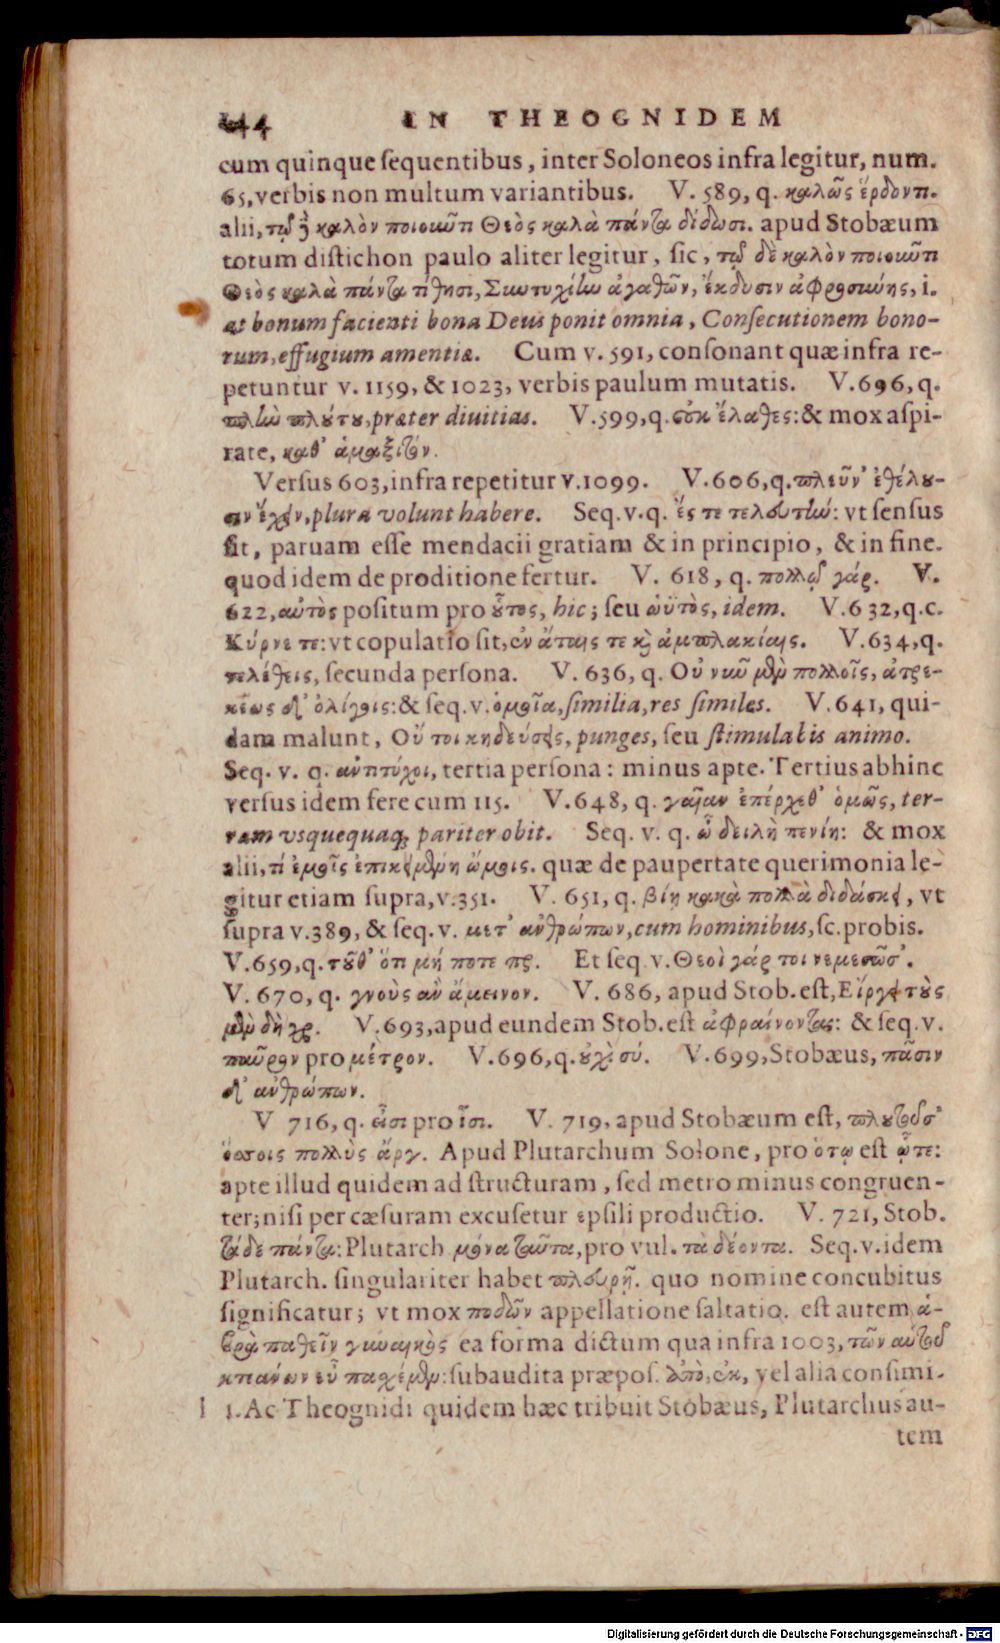 144 IN THEOGNIDEM
cum quinque ſequentibus, inter Soloneos infra legitur, num.
65, verbis non multum variantibus. V. 589, q. καλῶς ἔρδοντι.
alii, τῷ ȝ καλὸν ποιοιῶτι Θεὸς καλὰ πάντα δίδωσι. apud Stobæum
totum diſtichon paulo aliter legitur, ſic, τῷ δὲ καλὸν ποιοιῶτι
Θεὸς καλὰ πάντα τίθησι, Συωτυχίω ἀγαθῶν, ἔκδυσιν ἀφροσιώης, i.
at bonum facienti bona Deus ponit omnia, Conſecutionem bono-
rum, effugium amentiæ. Cum v. 591, conſonant quæ infra re-
petuntur v. 1159, & 1023, verbis paulum mutatis. V. 696, q.
πλὼ πλούτου, præter diuitias. V. 599, q. οὐκ ἔλαθες: & mox aſpi-
rate, καθ᾽ ἁμαξιτόν.
Verſus 603, infra repetitur v. 1099. V. 606, q. πλεῦν᾽ ἐθέλου-
σιν ἔχειν, plura volunt habere. Seq. v. q. ἔς τε τελευτὼ: vt ſenſus
ſit, paruam eſſe mendacii gratiam & in principio, & in fine.
quod idem de proditione fertur. V. 618, q. πολλῷ γάρ. V.
622, αὐτὸς poſitum pro οὗτος, hic; ſeu ὡϋτὸς, idem. V. 632, q. c.
Κύρνε τε: vt copulatio ſit, ἐν ἄταις τε καὶ ἀμπλακίαις. V. 634, q.
τελέθεις, ſecunda perſona. V. 636, q. Οὐ νιῶ μὲν πολλοῖς, ἀτρε-
κέως δ᾽ ὀλίγοις: & ſeq. v. ὁμοῖα, ſimilia, res ſimiles. V. 641, qui-
dam malunt, Οὔ τοι κηδεύσεις, punges, ſeu ſtimulabis animo.
Seq. v. q. ἀνπτύχοι, tertia perſona: minus apte. Tertius abhinc
verſus idem fere cum 115. V. 648, q. γαῖαν ἐπέρχεθ᾽ ὁμῶς, ter-
ram vsquequaq; pariter obit. Seq. v. q. ὦ δειλὴ πενίη: & mox
alii, τί ἐμοῖς ἐπικειμένη ὤμοις. quæ de paupertate querimonia le-
gitur etiam ſupra, v. 351. V. 651, q. βίῃ κακὰ πολλὰ διδάσκει, vt
ſupra v. 389, & ſeq. v. μετ᾽ ἀνθρώπων, cum hominibus, ſc. probis.
V. 659, q. τοῦθ᾽ ὅτι μή ποτε πρ. Et ſeq. v. Θεοὶ γάρ τοι νεμεσῶσ᾽.
V. 670, q. γνοὺς ἂν ἄμεινον. V. 686, apud Stob. eſt, Εἴργει τοὺς
μὲν δὴ χρ. V. 693, apud eundem Stob. eſt ἀφραίνοντας: & ſeq. v.
παῦρον pro μέτρον. V. 696, q. οὐχὶ σύ. V. 699, Stobæus, πᾶσιν
δ᾽ ἀνθρώπων.
V 716, q. εἶσι pro ἶσι. V. 719, apud Stobæum eſt, πλουτοῦσ᾽
ὅσσοις πολλὺς ἄργ. Apud Plutarchum Solone, pro ὅτῳ eſt ᾧτε:
apte illud quidem ad ſtructuram, ſed metro minus congruen-
ter; niſi per cæſuram excuſetur epſili productio. V. 721, Stob.
τάδε πάντα: Plutarch μόνα ταῦτα, pro vul. τὰ δέοντα. Seq. v. idem
Plutarch. ſingulariter habet πλευρῇ. quo nomine concubitus
ſignificatur; vt mox ποδῶν appellatione ſaltatio. eſt autem ἁ-
βρὰ παθεῖν γιυαικὸς ea forma dictum qua infra 1003, τῶν αὐτοῦ
κτεάνων εὖ παχέμεν: ſubaudita præpoſ. ἀπὸ, ἐκ, vel alia conſimi-
l i. Ac Theognidi quidem hæc tribuit Stobæus, Plutarchus au-
tem
Digitalisierung gefördert durch die Deutsche Forschungsgemeinschaft - DFG